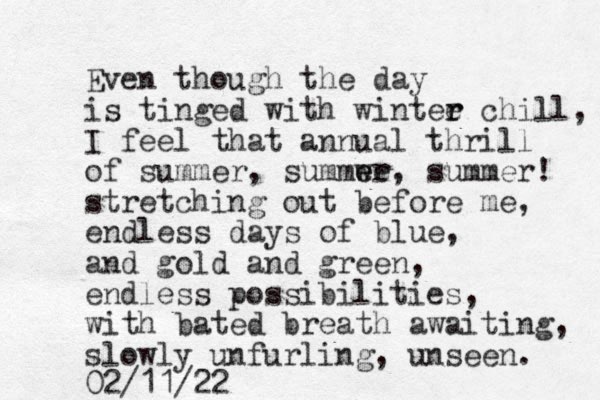 Even though the day
is tinged with winter chill,
I feel that annual thrill
of summer, summer, summer!
stretching out before me,
endless days of blue,
and gold and green,
endless possibilities,
with bated breath awaiting,
slowly unfurling, unseen.
02/11/22